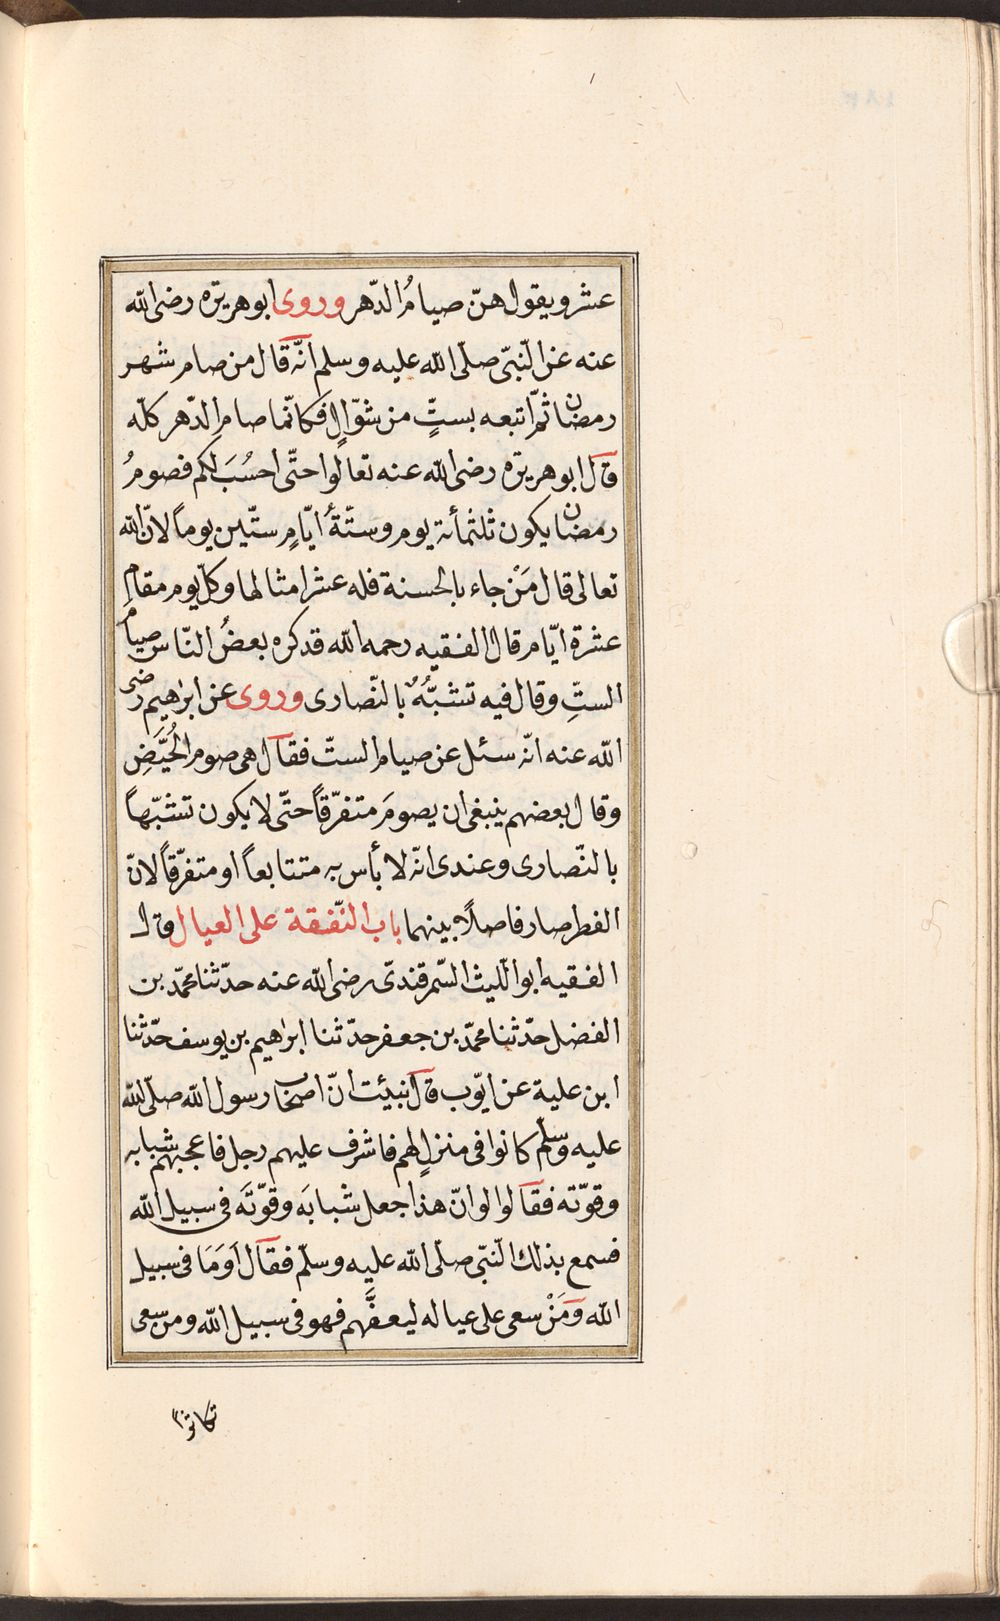 عشر ويقول هنّ صيامُ الدّهر وروى ابو هريرة رضى الله
عنه عن النّبىّ صلّى الله عليه وسلم انّه قال من صام شهر
رمضان ثمّ اتبعه بستٍّ من شوّالٍ فكانّما صام الدّهر كلّه
قال ابو هريرة رضى الله عنه تعالوا حتّى احسُبَ لكم فصومُ
رمضان يكون ثلثمأئة يوم وستّةُ ايّامٍ ستّين يوماً لانّ الله
تعالى قال مَنْ جاء بالحسنة فله عشر امثالها وكلّ يوم مقام
عشرة ايّام قال الفقيه رحمه الله قد كره بعضُ النّاس صيامَ
الستِّ وقال فيه تشبُّهٌ بالنّصارى وروى عن ابرٰهيم رضى
الله عنه انّه سئل عن صيام الستّ فقال هى صوم الحُيَّضِ
وقال بعضهم ينبغى ان يصومَ متفرّقاً حتّى لا يكون تشبّهاً
بالنّصارى وعندى انّه لا بأس به متتابعاً او متفرّقاً لانّ
الفطر صار فاصلاً بينهما باب النّفقة على العيال قال
الفقيه ابو اللّيث السّمرقندىّ رضى الله عنه حدّثنا محمّد بن
الفضل حدّثنا محمّد بن جعفر حدّثنا ابرٰهيم بن يوسف حدّثنا
ابن علية عن ايّوب قال نبيئت انّ اصحاب رسول الله صلّى الله
عليه وسلّم كانوا فى منزلٍ لهم فاشرف عليهم رجل فاعجبهم شبابه
وقوّته فقالوا لو انّ هذا جعل شبابَه وقوّتَه فى سبيل الله
فسمع بذلك النّبىّ صلّى الله عليه وسلّم فقال اَوَمَا فى سبيل
الله وَمَنْ سعى على عياله ليعفَّهم فهو فى سبيل الله ومن سعى